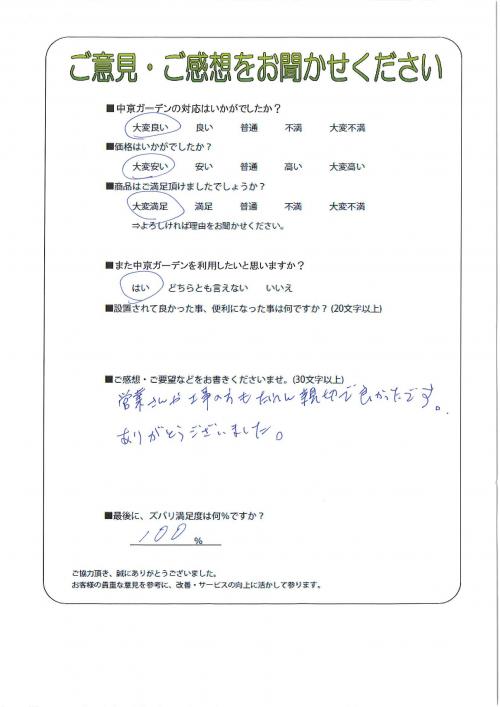 ご意見・ご感想をお聞かせください
■中京ガーデンの対応はいかがでしたか？
大変良い 良い 普通 不満 大変不満
■価格はいかがでしたか？
大変安い 安い 普通 高い 大変高い
■商品はご満足頂けましたでしょうか？
大変満足 満足 普通 不満 大変不満
⇒よろしければ理由をお聞かせください。
■また中京ガーデンを利用したいと思いますか？
はい どちらとも言えない いいえ
■設置されて良かった事、便利になった事は何ですか？(20文字以上)
■ご感想・ご要望などをお書きくださいませ。(30文字以上)
営業さんや工事の方も 親切で良かったです。
ありがとうございました。
■最後に、ズバリ満足度は何％ですか？
100 %
ご協力頂き、誠にありがとうございました。
お客様の貴重な意見を参考に、改善・サービスの向上に活かして参ります。